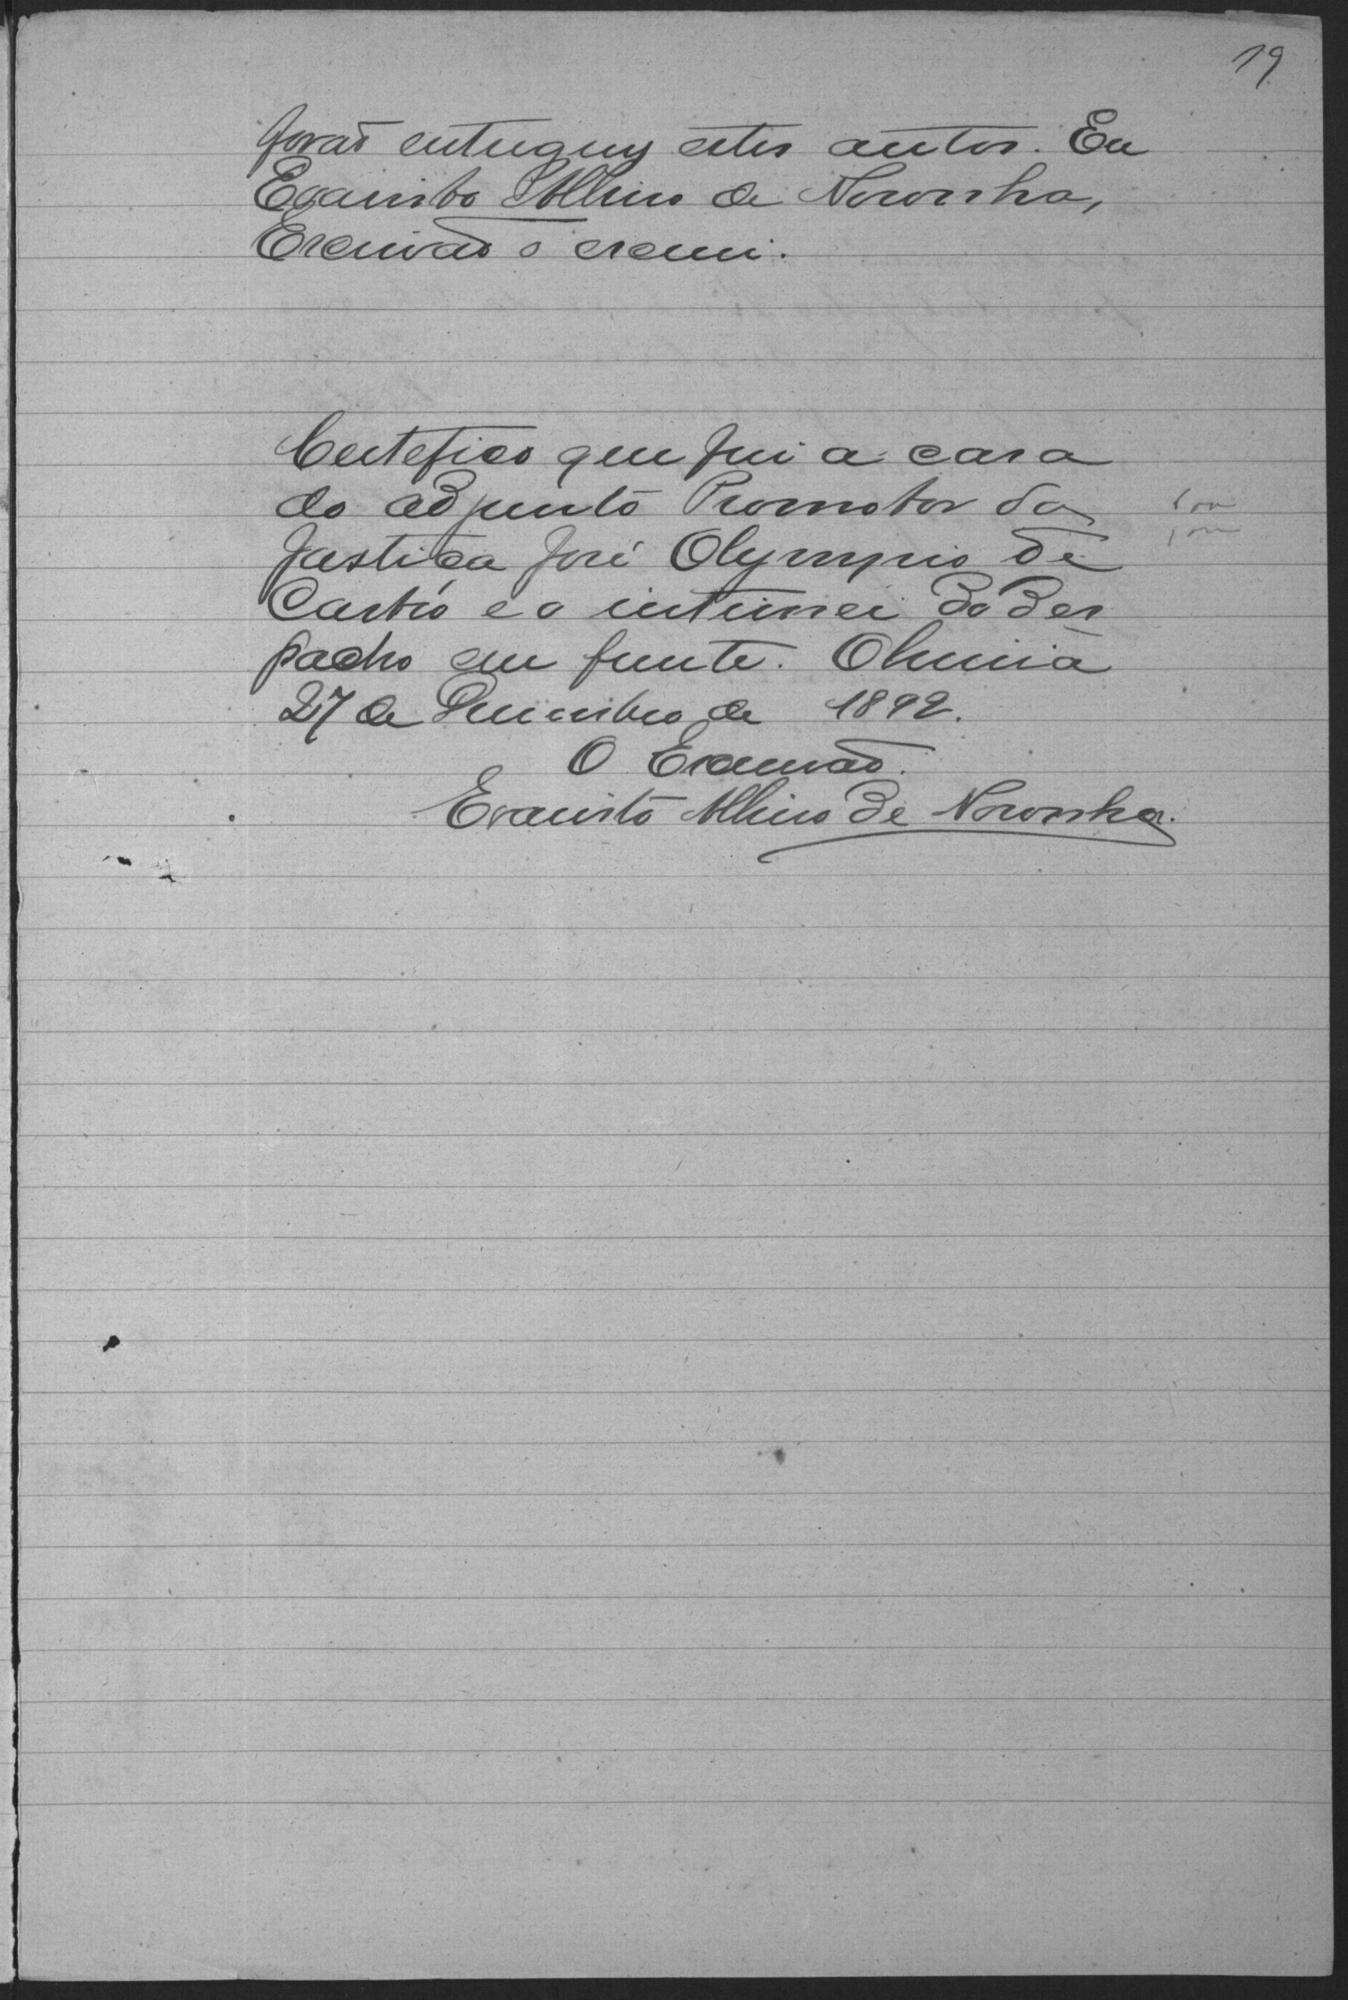 19
forão entregues estes autos. Eu
Evaristo Albino de Noronha,
Escrivão o escrevi.
Certefico que fui a casa
do adjunto Promotor da
Justiça José Olympio de
Castro e o intimei do des
pacho em frente.
27 de Dezembro de 1892.
O Escrivão.
Evaristo Albino de Noronha.